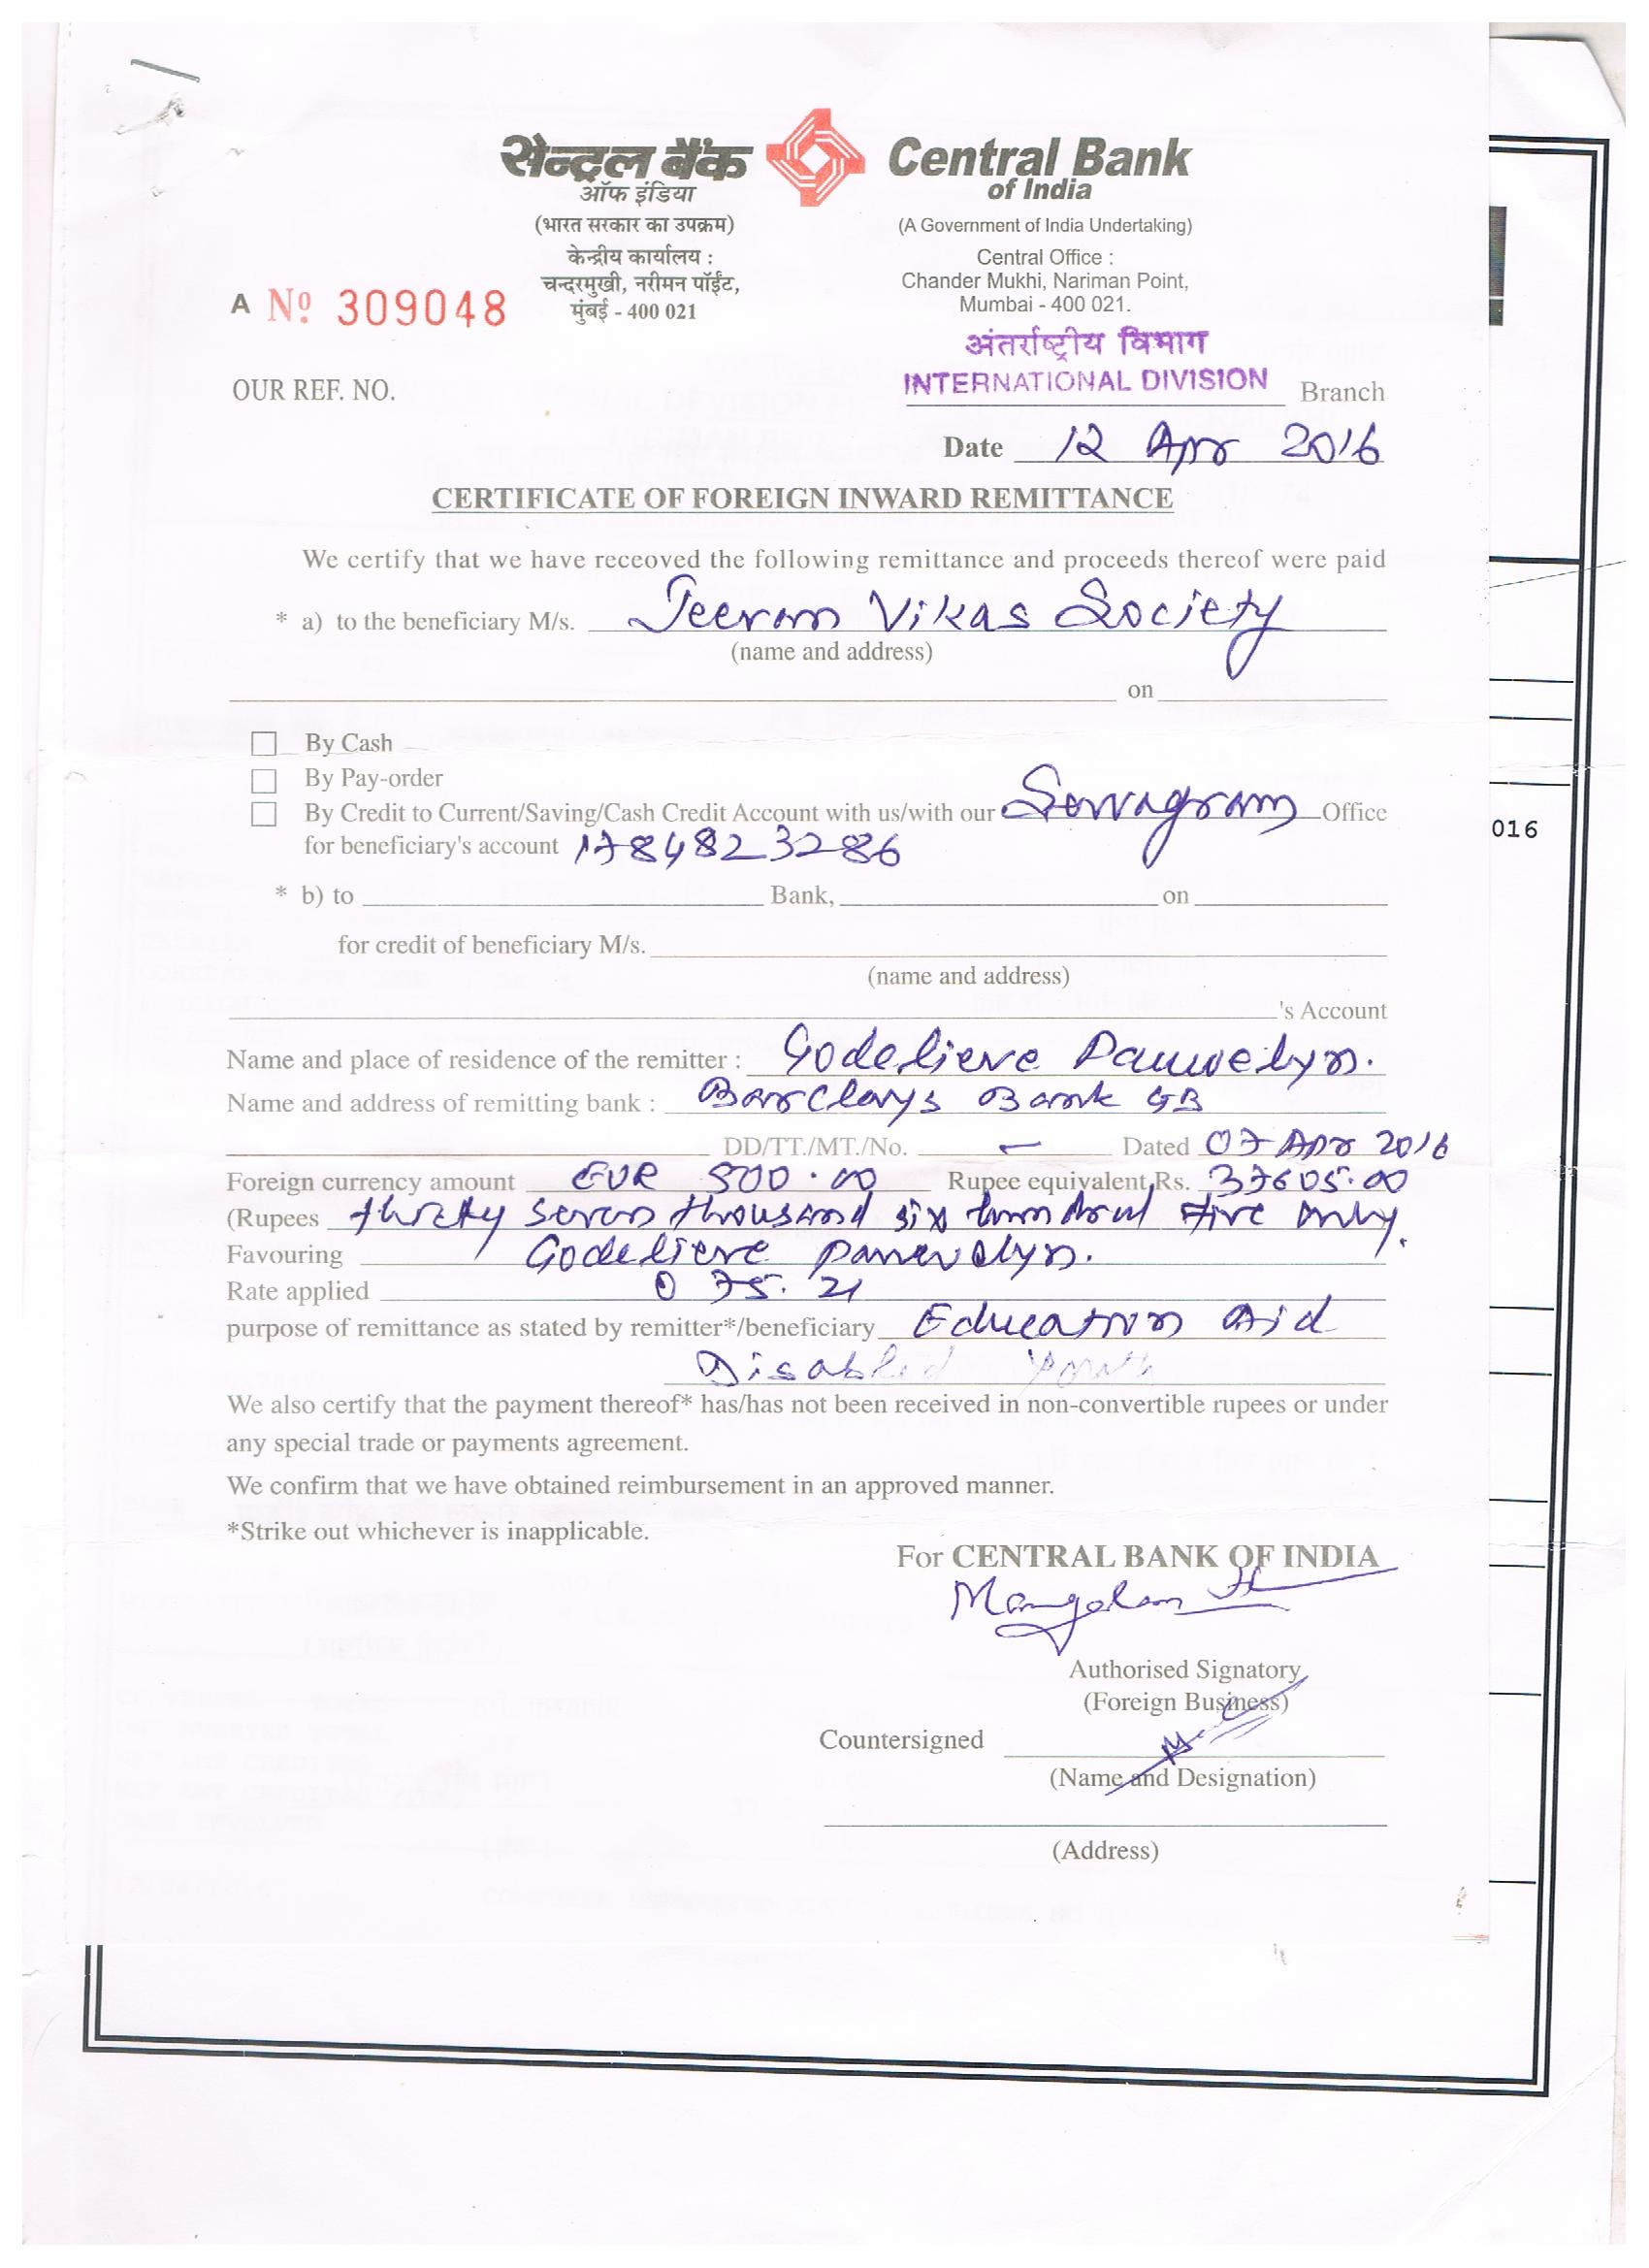 सेन्ट्रल बैंक
ऑफ इंडिया
(भारत सरकार का उपक्रम)
केन्द्रीय कार्यालय :
चन्दरमुखी, नरीमन पॉईंट,
मुंबई - 400 021
Central Bank
of India
(A Government of India Undertaking)
Central Office :
Chander Mukhi, Nariman Point,
Mumbai - 400 021.
A Nº 309048
अंतर्राष्ट्रीय विभाग
OUR REF. NO. INTERNATIONAL DIVISION Branch
Date 12 Apr 2016
CERTIFICATE OF FOREIGN INWARD REMITTANCE
We certify that we have receoved the following remittance and proceeds thereof were paid
* a) to the beneficiary M/s. Jeevan Vikas Society
(name and address)
on
By Cash
By Pay-order
By Credit to Current/Saving/Cash Credit Account with us/with our Sevagram Office
for beneficiary's account 1784823286
016
* b) to Bank, on
for credit of beneficiary M/s.
(name and address)
's Account
Name and place of residence of the remitter : Godelieve Pauwelyn.
Name and address of remitting bank : Barclays Bank GB
DD/TT./MT./No. - Dated 07 Apr 2016
Foreign currency amount EUR 500.00 Rupee equivalent Rs. 37605.00
(Rupees thirty seven thousand six hundred five only.
Favouring Godelieve Pauwelyn.
Rate applied @ 75.21
purpose of remittance as stated by remitter*/beneficiary Education Aid
Disabled Youth
We also certify that the payment thereof* has/has not been received in non-convertible rupees or under
any special trade or payments agreement.
We confirm that we have obtained reimbursement in an approved manner.
*Strike out whichever is inapplicable.
For CENTRAL BANK OF INDIA
Mangalam
Authorised Signatory
(Foreign Business)
Countersigned
(Name and Designation)
(Address)